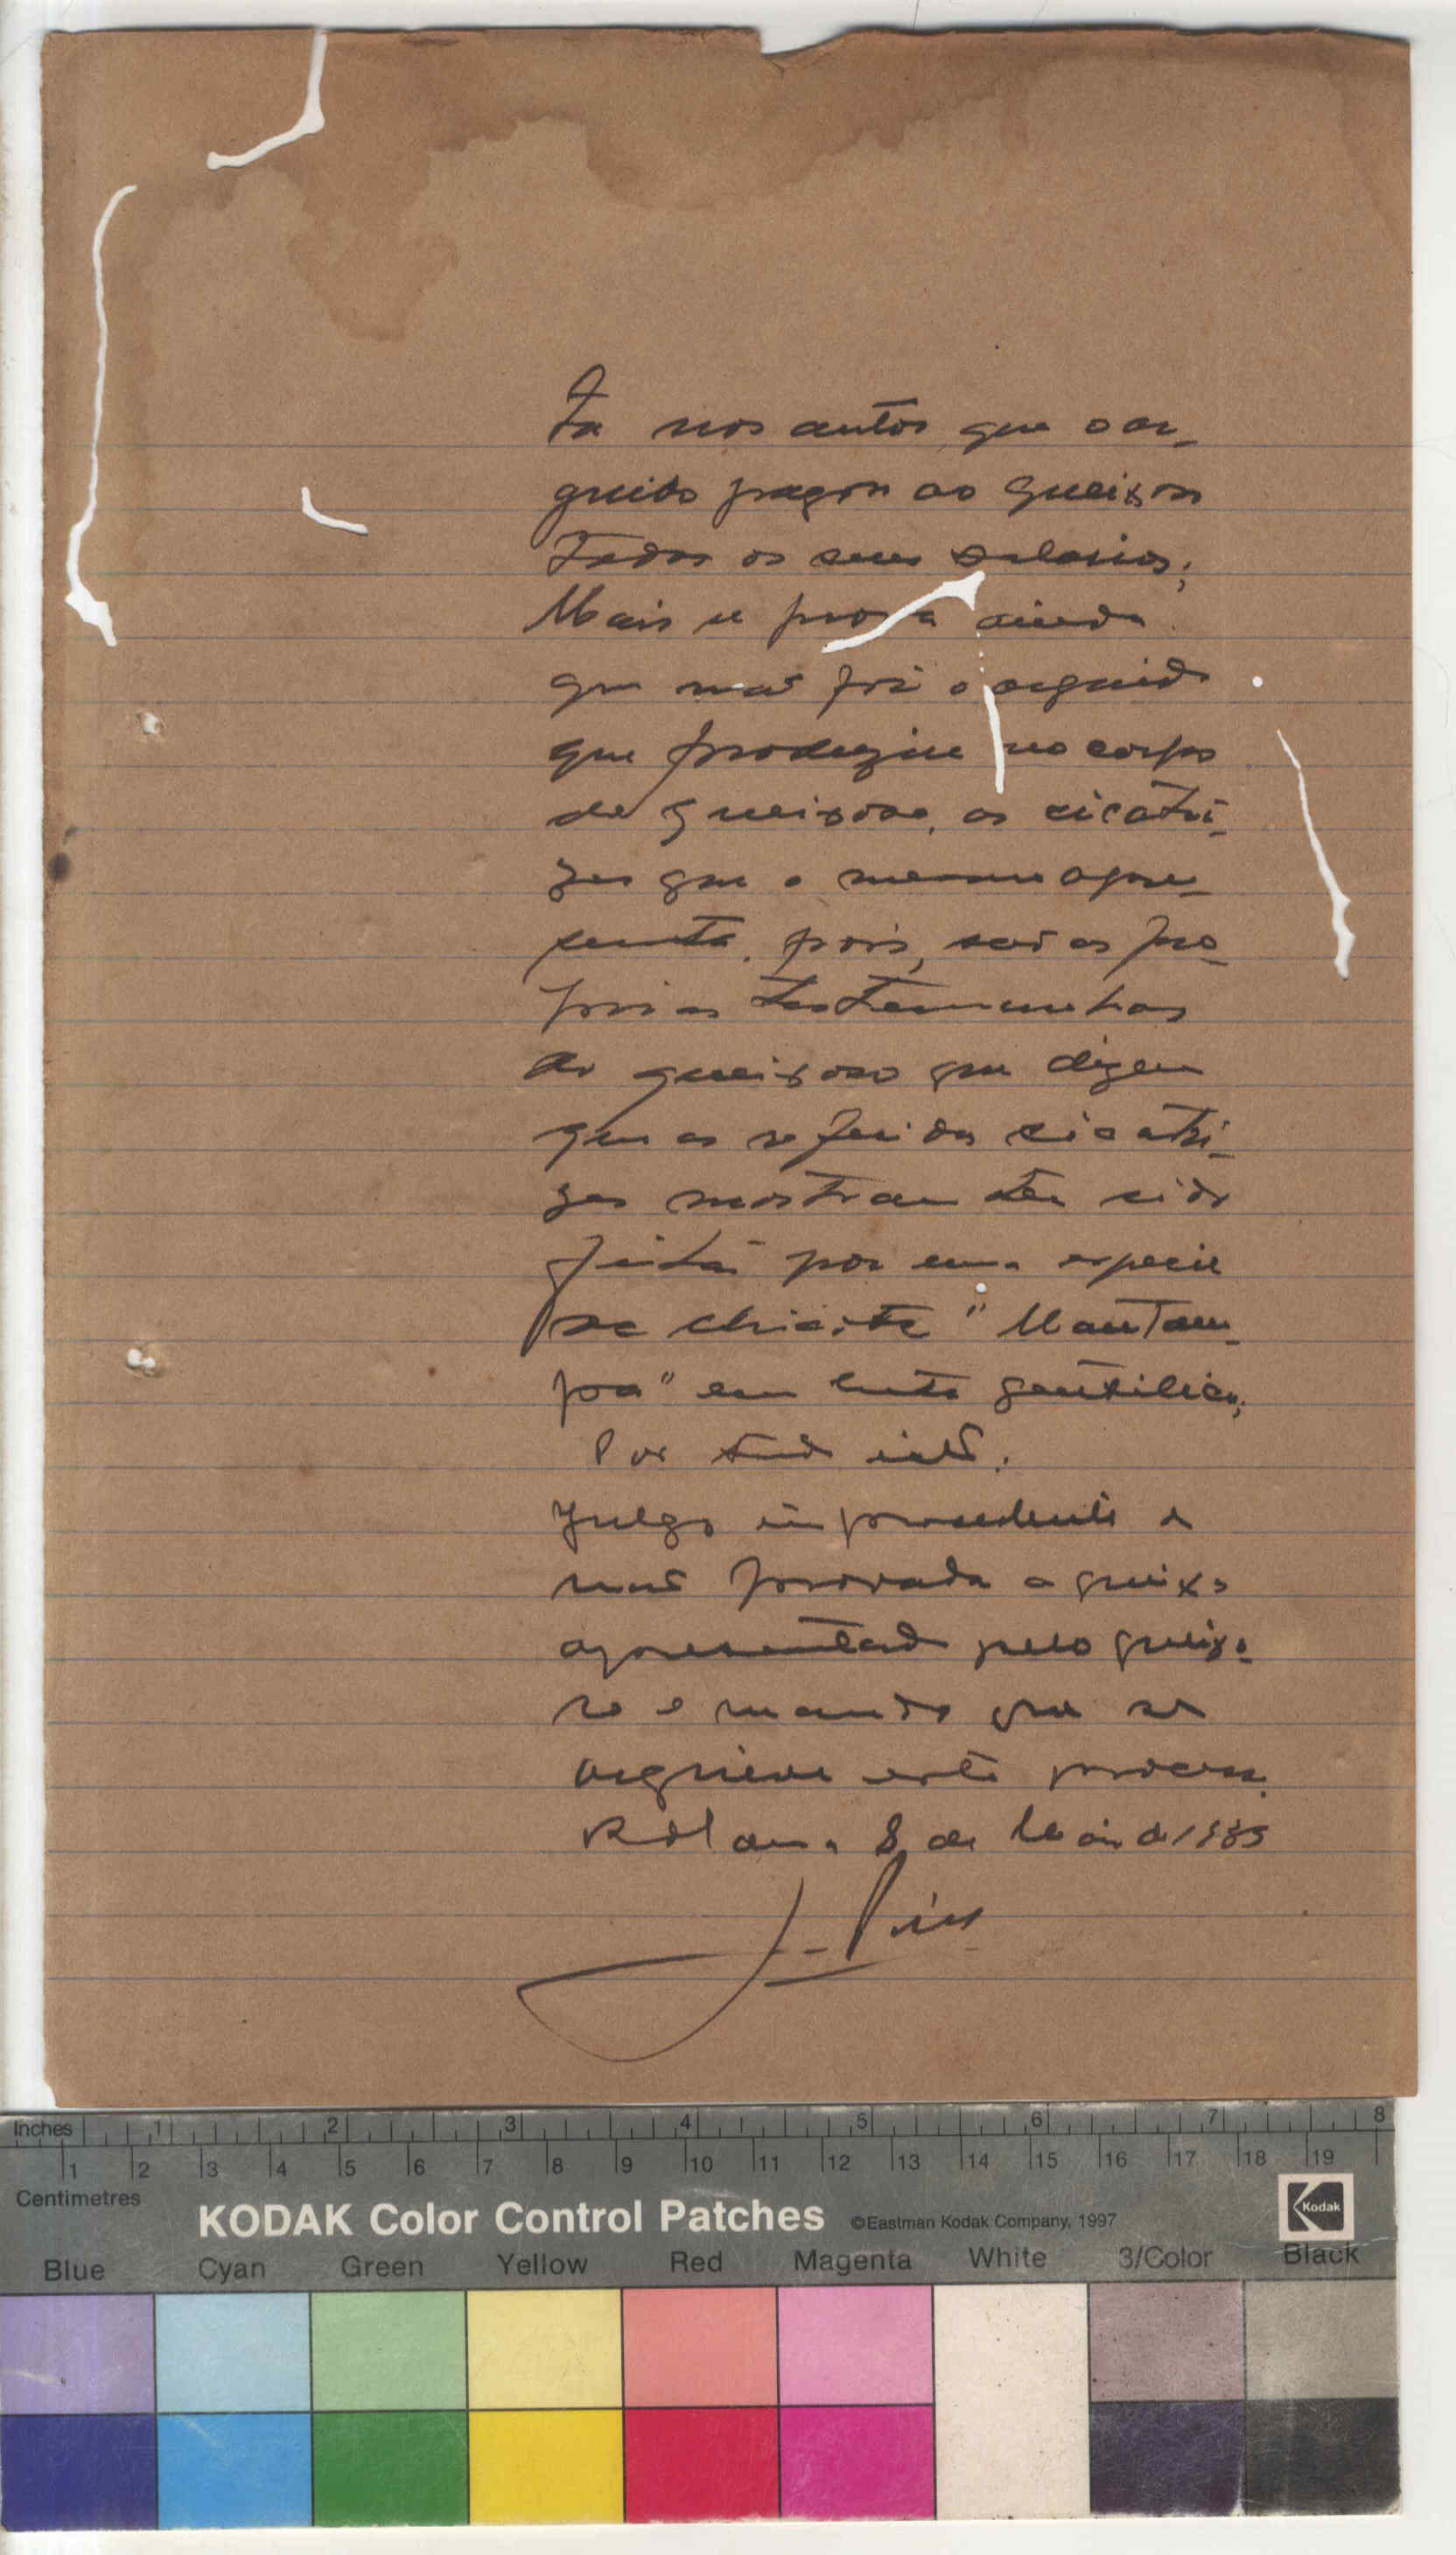 ta nos autos que o ar-
guido pagou ao queixoso
todos os seus salarios;
Mais se prova ainda
que não foi o arguido
que produziu no corpo
do queixoso, as cicatri-
zes que o mesmo apre-
senta, pois, são as pro-
prias testemunhas
do queixoso que dizem
que as referidas cicatri-
zes mostram ter sido
feitas por uma especie
de chicote "Mautam-
poa" em luta gentilica;
Por tudo isto:
Julgo improcedente e
não provada a queixa
apresentada pelo queixo-
so e mando que se
arquive este processo.
8 de Maio de
J. Pires
Inches 1 2 3 4 5 6 7 8
1 2 3 4 5 6 7 8 9 10 11 12 13 14 15 16 17 18 19
Centimetres
KODAK Color Control Patches ©Eastman Kodak Company, 1997 Kodak
Blue Cyan Green Yellow Red Magenta White 3/Color Black